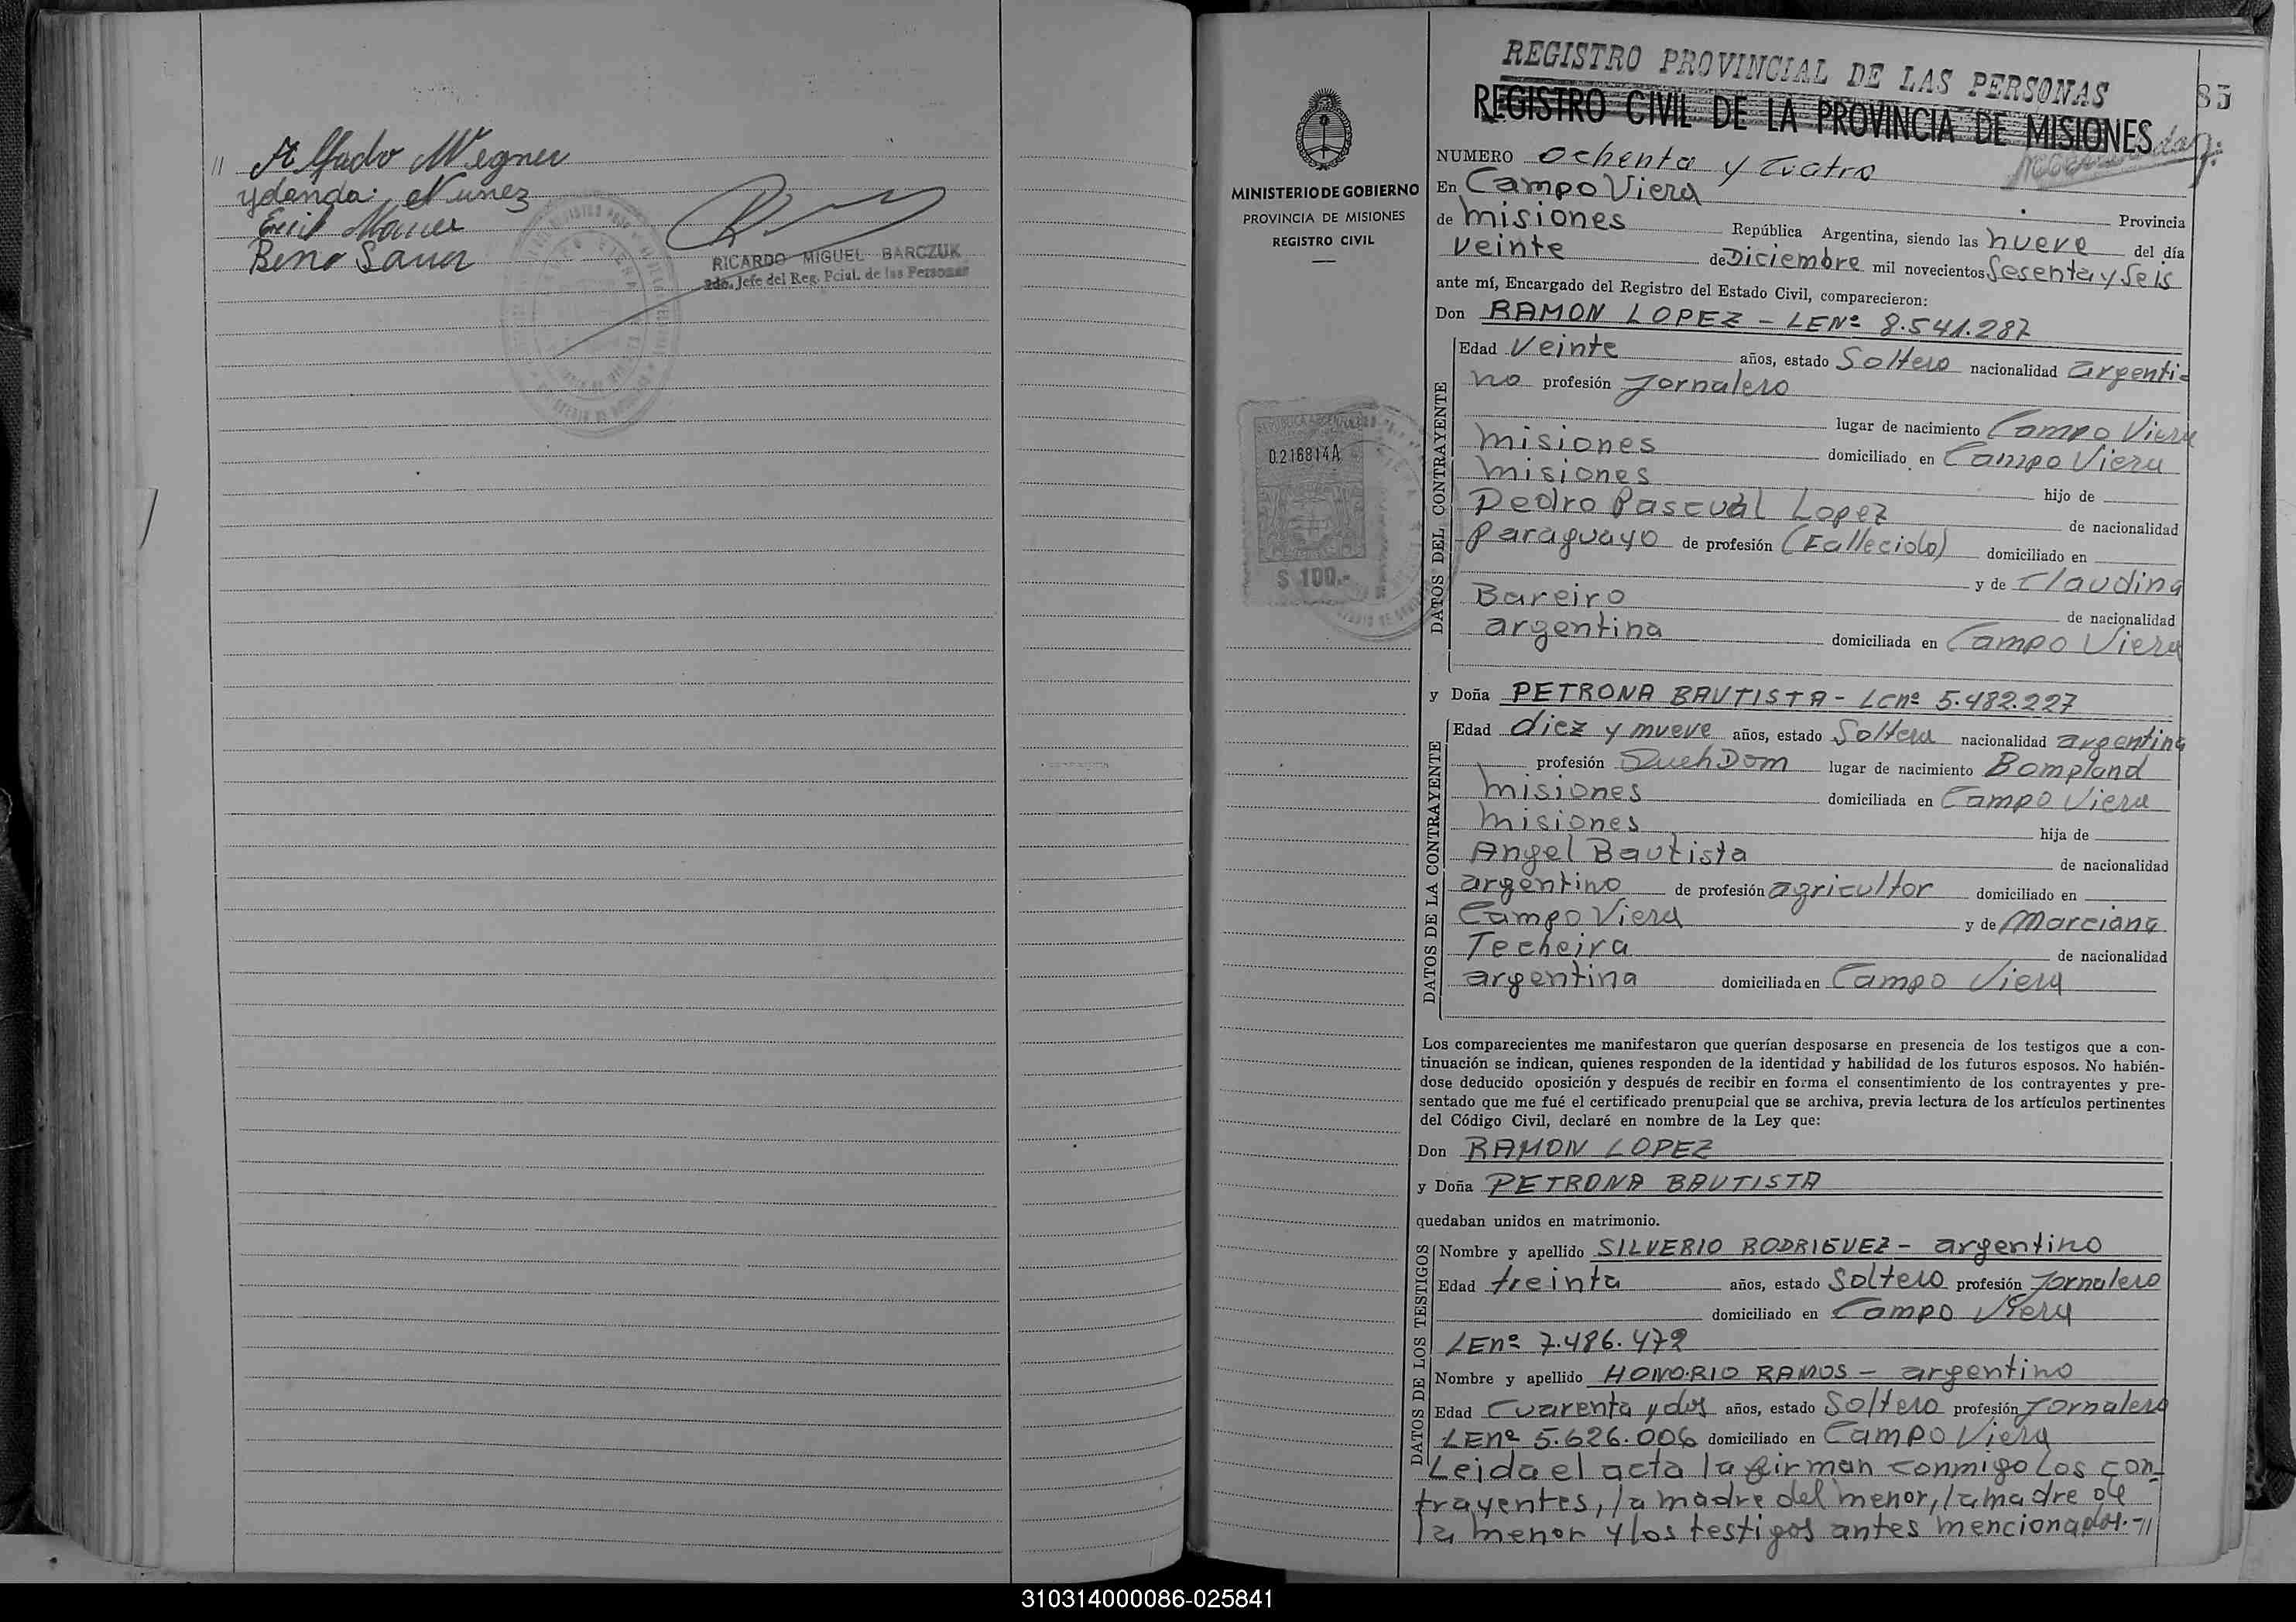 // Alfredo Wegner
Ydanda Nunez
Beno Sauer
RICARDO MIGUEL BARCZUK
2do. Jefe del Reg. Pcial. de las Personas
REGISTRO PROVINCIAL DE LAS PERSONAS
REGISTRO CIVIL DE LA PROVINCIA DE MISIONES
85
MINISTERIO DE GOBIERNO
PROVINCIA DE MISIONES
REGISTRO CIVIL
0.216814A
$ 100.-
NUMERO Ochenta y Cuatro
En Campo Viera
de misiones Provincia
República Argentina, siendo las nueve del día
veinte de Diciembre mil novecientos Sesenta y Seis
ante mí, Encargado del Registro del Estado Civil, comparecieron:
Don RAMON LOPEZ - LENº 8.541.287
DATOS DEL CONTRAYENTE
Edad Veinte años, estado Soltero nacionalidad argenti-
no profesión Jornalero
lugar de nacimiento Campo Viera
misiones domiciliado en Campo Viera
misiones hijo de
Pedro Pascual Lopez de nacionalidad
Paraguayo de profesión (Fallecido) domiciliado en
y de Claudina
Bareiro de nacionalidad
argentina domiciliada en Campo Viera
y Doña PETRONA BAUTISTA - LCnº 5.482.227
DATOS DE LA CONTRAYENTE
Edad diez y nueve años, estado Soltera nacionalidad argentina
profesión QuehDom lugar de nacimiento Bompland
misiones domiciliada en Campo Viera
misiones hija de
Angel Bautista de nacionalidad
argentino de profesión agricultor domiciliado en
Campo Viera y de Marciana
Techeira de nacionalidad
argentina domiciliada en Campo Viera
Los comparecientes me manifestaron que querían desposarse en presencia de los testigos que a con-
tinuación se indican, quienes responden de la identidad y habilidad de los futuros esposos. No habién-
dose deducido oposición y después de recibir en forma el consentimiento de los contrayentes y pre-
sentado que me fué el certificado prenupcial que se archiva, previa lectura de los artículos pertinentes
del Código Civil, declaré en nombre de la Ley que:
Don RAMON LOPEZ
y Doña PETRONA BAUTISTA
quedaban unidos en matrimonio.
DATOS DE LOS TESTIGOS
Nombre y apellido SILVERIO RODRIGUEZ - argentino
Edad treinta años, estado Soltero profesión Jornalero
domiciliado en Campo Viera
LEnº 7.486.472
Nombre y apellido HONORIO RAMOS - argentino
Edad Cuarenta y dos años, estado Soltero profesión Jornalero
LEnº 5.626.006 domiciliado en Campo Viera
Leida el acta la firman conmigo los con-
trayentes, la madre del menor, la madre de
la menor y los testigos antes mencionados.-//
310314000086-025841